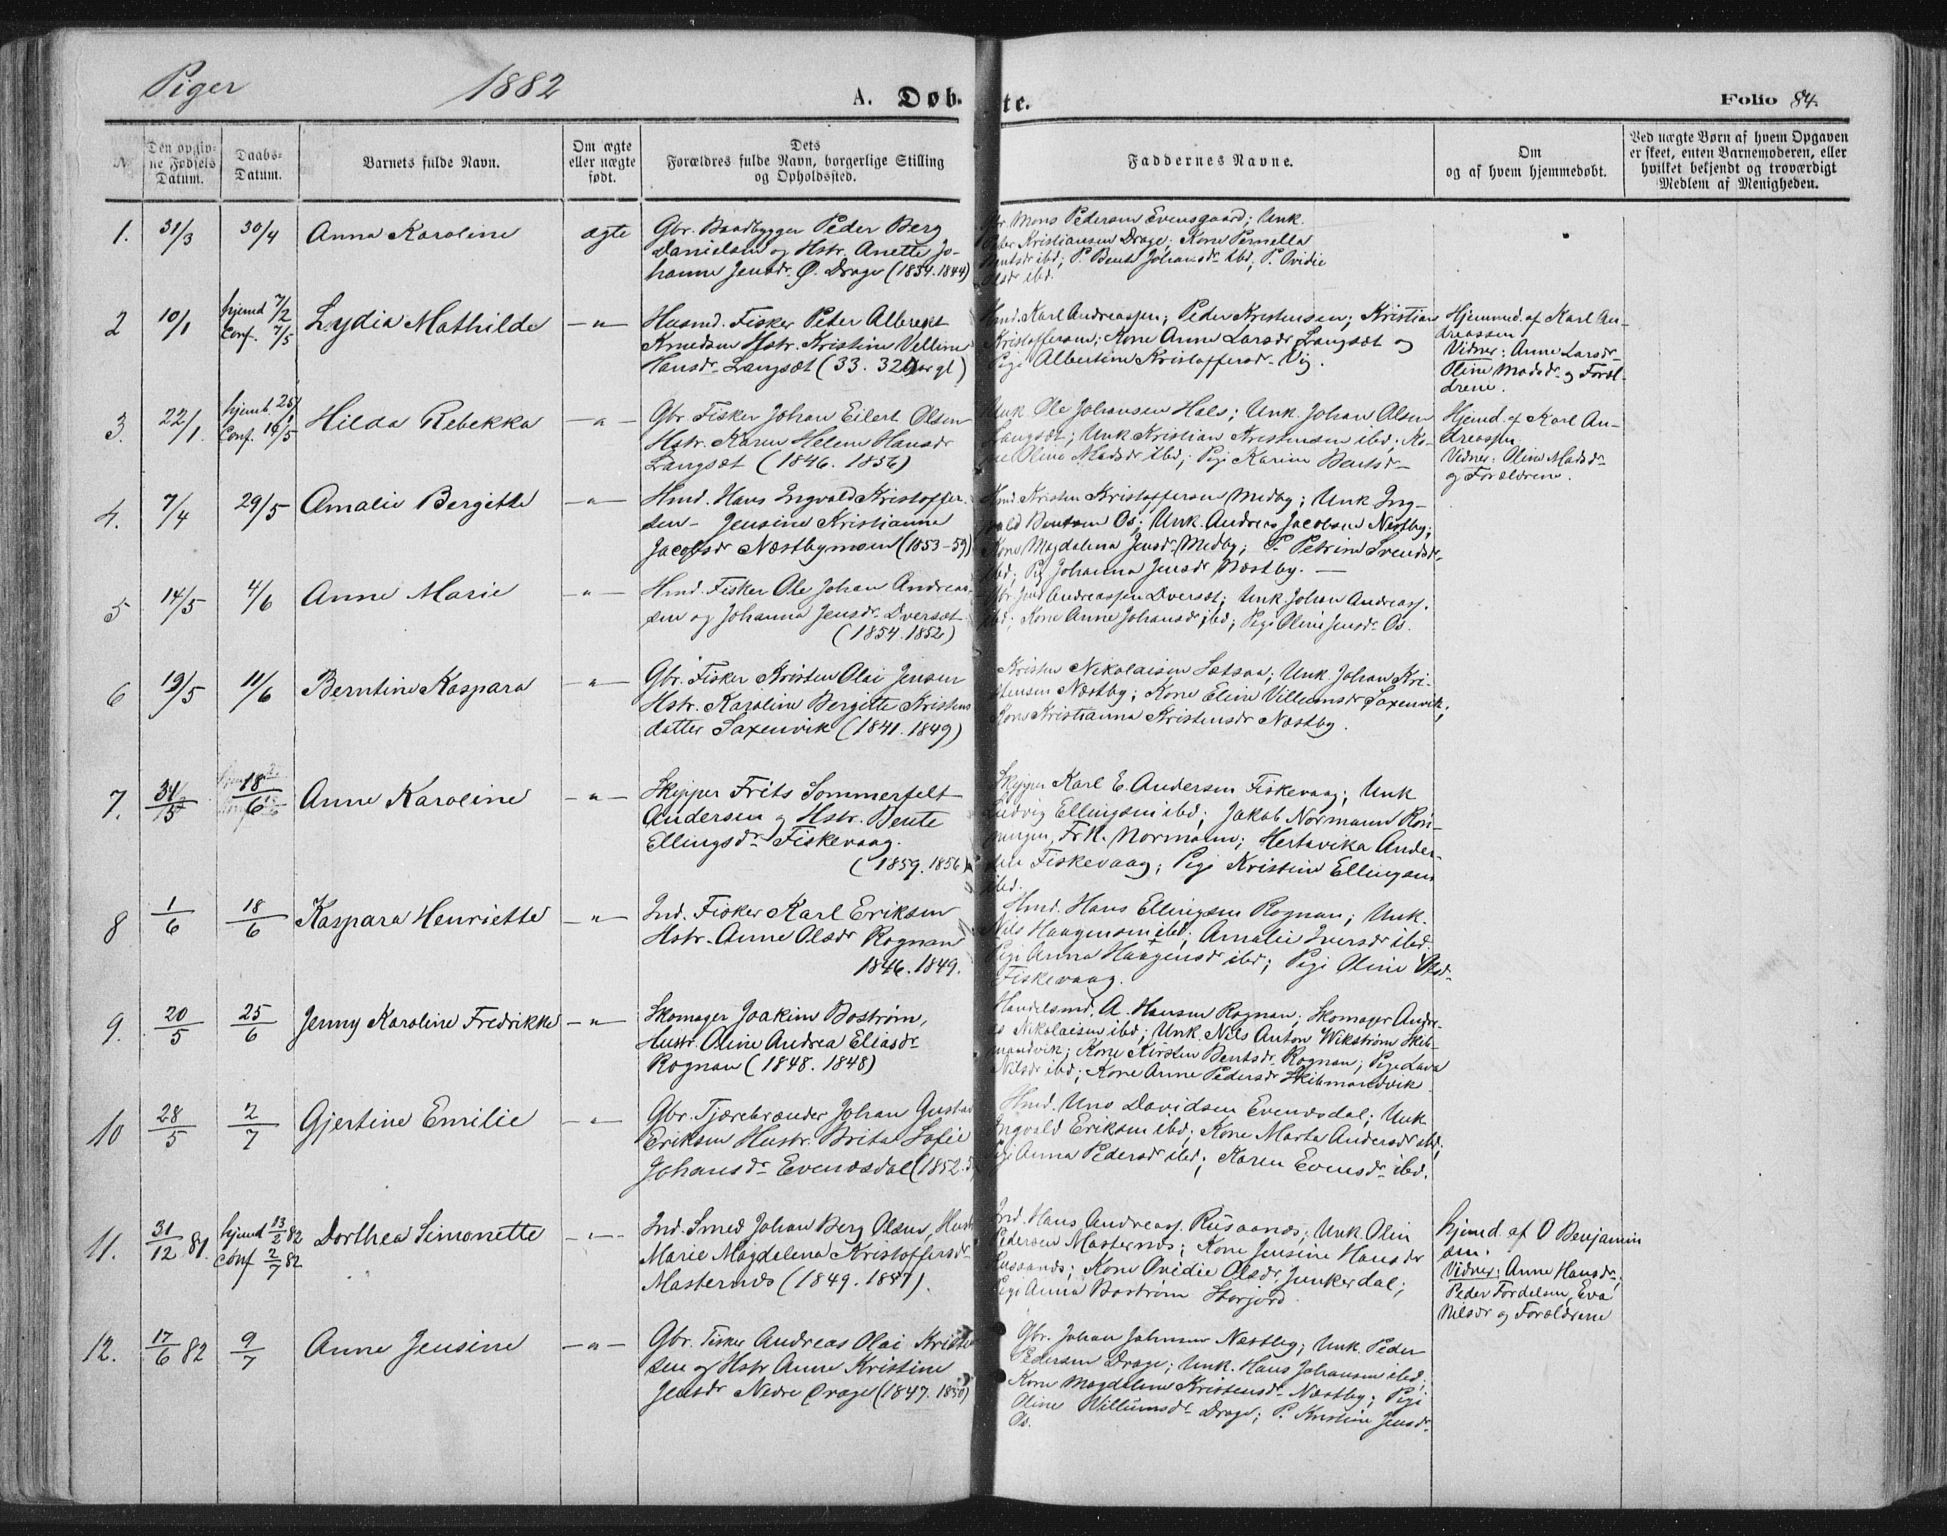 Piger 1882 A. Døbte. Folio 84.
N.
Den opgiv-
ne Fødsels
Datum.
Daabs-
Datum.
Barnets fulde Navn.
Om ægte
eller uægte
født.
Dets
Forældres fulde Navn, borgerlige Stilling
og Opholdssted.
Faddernes Navne.
Om
og af hvem hjemmedøbt.
Ved uægte Børn af hvem Opgaven
er skeet, enten Barnemoderen, eller
hvilket bekjendt og troværdigt
Medlem af Menigheden.
1. 31/3 30/4 Anna Karoline ægte
Gbr. Baadbygger Peder Berg
Danielsen og Hstr. Anette Jo-
hanna Jensdr. Ø. Drage (1854. 1844)
Gbr Mons Pedersen Evensgaard; Unk.
Peder Kristiansen Drage; Kone Pernella
Bentsdr ibd; P. Bent Johansdr ibd; P. Ovidie
Olsdr ibd.
2 10/1 hjemd 7/2
Conf. 7/5
Lydia Mathilde -"-
Husmd. Fisker Peter Albrekt
Knudsen Hstr. Kristine Velline
Hansdr Langsæt (33. 32 Aar gl)
Hmd. Karl Andreassen; Peder Kristensen; Kristian
Kristoffersen; Kone Anne Larsdr Langsæt og
Pige Albertine Kristoffersdr Vig.
Hjemmed. af Karl An-
dreassen
Vidner: Anne Larsdr
Oline Madsdr og Foræl-
drene.
3. 22/1. hjemb. 25/1
Conf. 16/5
Hilda Rebekka -"-
Gbr Fisker Johan Eilert Olsen
Hstr. Karen Helene Hansdr
Langsæt (1846. 1856)
Unk. Ole Johansen Hals; Unk. Johan Olsen
Langsæt; Unk Kristian Kristensen ibd; Ko-
ne Oline Madsdr ibd; Pige Karine Bentsdr
Hjemd. af Karl An-
dreassen
Vidner: Oline Madsdr
og Forældrene.
4. 7/4 29/5 Amalie Bergitte -"-
Hmd. Hans Ingvald Kristoffer-
sen - Jensine Kristianna
Jacobsdr Næstbymoen (1853-59)
Hmd. Kristen Kristoffersen Medby; Unk Ing-
vald Bentsen Os; Unk. Andreas Jacobsen Næstby;
Kone Magdalena Jensdr Medby; P. Petrine Svendsdr
ibd; Pig Johanna Jensdr Næstby. —
5 14/5 4/6 Anne Marie -"-
Hmd. Fisker Ole Johan Andreas-
sen og Johanna Jensdr Dversæt
(1854. 1852)
Gbr Jens Andreassen Dversæt; Unk. Johan Andreass.
ibd; Kone Anne Johansdr ibd; Pige Oline Jensdr Os.
6 19/5 11/6 Berntine Kaspara -"-
Gbr. Fisker Kristen Olai Jensen
Hstr. Karoline Bergitte Kristens
datter Saxenvik (1841. 1849)
Kristen Nikolaisen Setsaa; Unk Johan Kri-
stensen Næstby; Kone Eline Villumsdr Saxenvik;
Kone Kristianna Kristensdr Næstby.
7. 31/5 18/6 Anne Karoline -"-
Skipper Frits Sommerfelt
Andersen og Hstr. Bente
Ellingsdr Fiskevaag.
(1859. 1856)
Skipper Karl E. Andersen Fiskevaag; Unk
Ludvig Ellingsen ibd; Jakob Normann
Frk. Normann; Hertavika Ander-
sen Fiskevaag; Pige Kristine Ellingsen
ibd.
8 1/6 18/6 Kaspara Henriette -"-
Ind. Fisker Karl Eriksen
Hstr. Anne Olsdr Rognan
1846. 1849.
Hmd. Hans Ellingsen Rognan; Unk.
Nils Haagensen ibd; Amalie Iversdr ibd.
Pige Anna Haagensdr ibd; Pige Oline Olsdr
Fiskevaag.
9. 20/5 25/6 Jenny Karoline Fredrikke -"-
Skomager Joakim Bostrøm,
Hustr. Oline Andrea Eliasdr
Rognan (1848. 1848)
Handelsmd. A. Hansen Rognan; Skomager Andre-
as Nikolaisen ibd; Unk. Nils Anton Wikstrøm Skib-
mandvik; Kone Kirsten Bentsdr Rognan; Pige Lava
Nilsdr ibd; Kone Anne Pedersdr Skibmandvik
10 28/5 2/7 Gjertine Emilie -"-
Gbr. Tjærebrænder Johan Gustav
Eriksen Hustr. Brita Sofie
Johansdr Evenæsdal (1852.
Hmd. Uno Davidsen Evenæsdal; Unk
Ingvald Eriksen ibd; Kone Marta Andersdr ibd;
Pige Anna Pedersdr ibd; Karen Evensdr ibd.
11. 31/12 81. hjemd 13/2 82
Conf 2/7 82
Dorthea Simonette -"-
Ind. Smed Johan Berg Olsen, Hustr
Marie Magdelena Kristoffersdr
Masternæs (1849. 1857).
Ind. Hans Andreass. Rusaanæs; Unk Olin
Pedersen Masternæs; Kone Jensine Hansdr
Russanæs; Kone Ovidie Olsdr Junkerdal;
Pige Anna Bostrøm Storjord
hjemd. af O Benjamin
sen.
Vidner: Anne Hansdr,
Peder Fordelsen, Eva
Nilsdr og Forældrene
12. 17/6 82 9/7 Anne Jensine -"-
Gbr. Fisker Andreas Olai Kristen
sen og Hstr Anne Kristine
Jensdr Nedre Drage (1847. 1850)
Gbr. Johan Johnsen Næstby; Unk Peder
Pedersen Drage; Unk. Hans Johansen ibd;
Kone Magdeline Kristensdr Næstby; Pige
Oline Willumsdr Drage; P. Kristine Jensdr
Os.